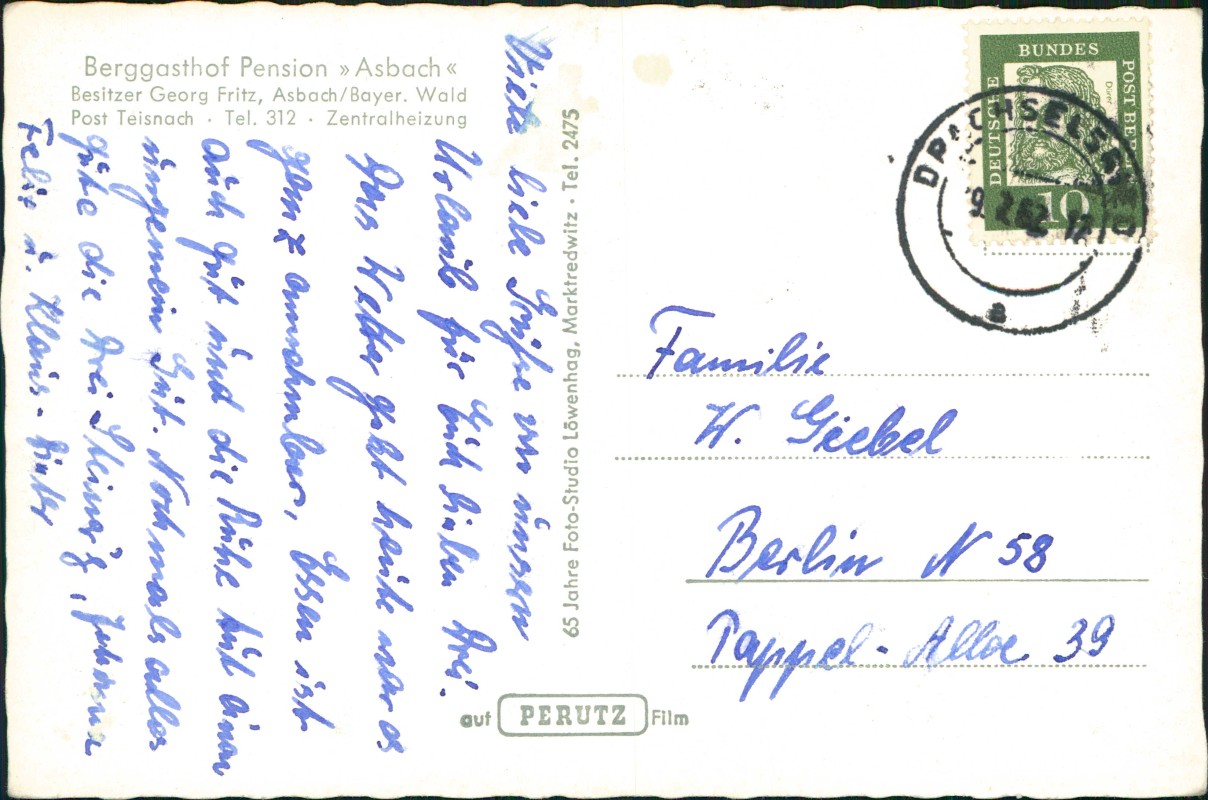 Berggasthof Pension »Asbach«
Besitzer Georg Fritz, Asbach/Bayer. Wald
Post Teisnach · Tel. 312 · Zentralheizung
Viele liebe Grüße von unserm
Urlaub für Euch lieben Drei.
Das Wetter geht heute war es
ganz annehmbar, Essen ist
auch gut und die Ruhe tut einem
ungemein gut. Nochmals alles
gute die drei
Felix u. Klaus-Dieter
65 Jahre Foto-Studio Löwenhag, Marktredwitz · Tel. 2475
auf PERUTZ Film
DEUTSCHE BUNDES POST BERLIN
Dürer
10
DRACHSELSRIED
a
Familie
W. Giebel
Berlin N 58
Pappel-Allee 39